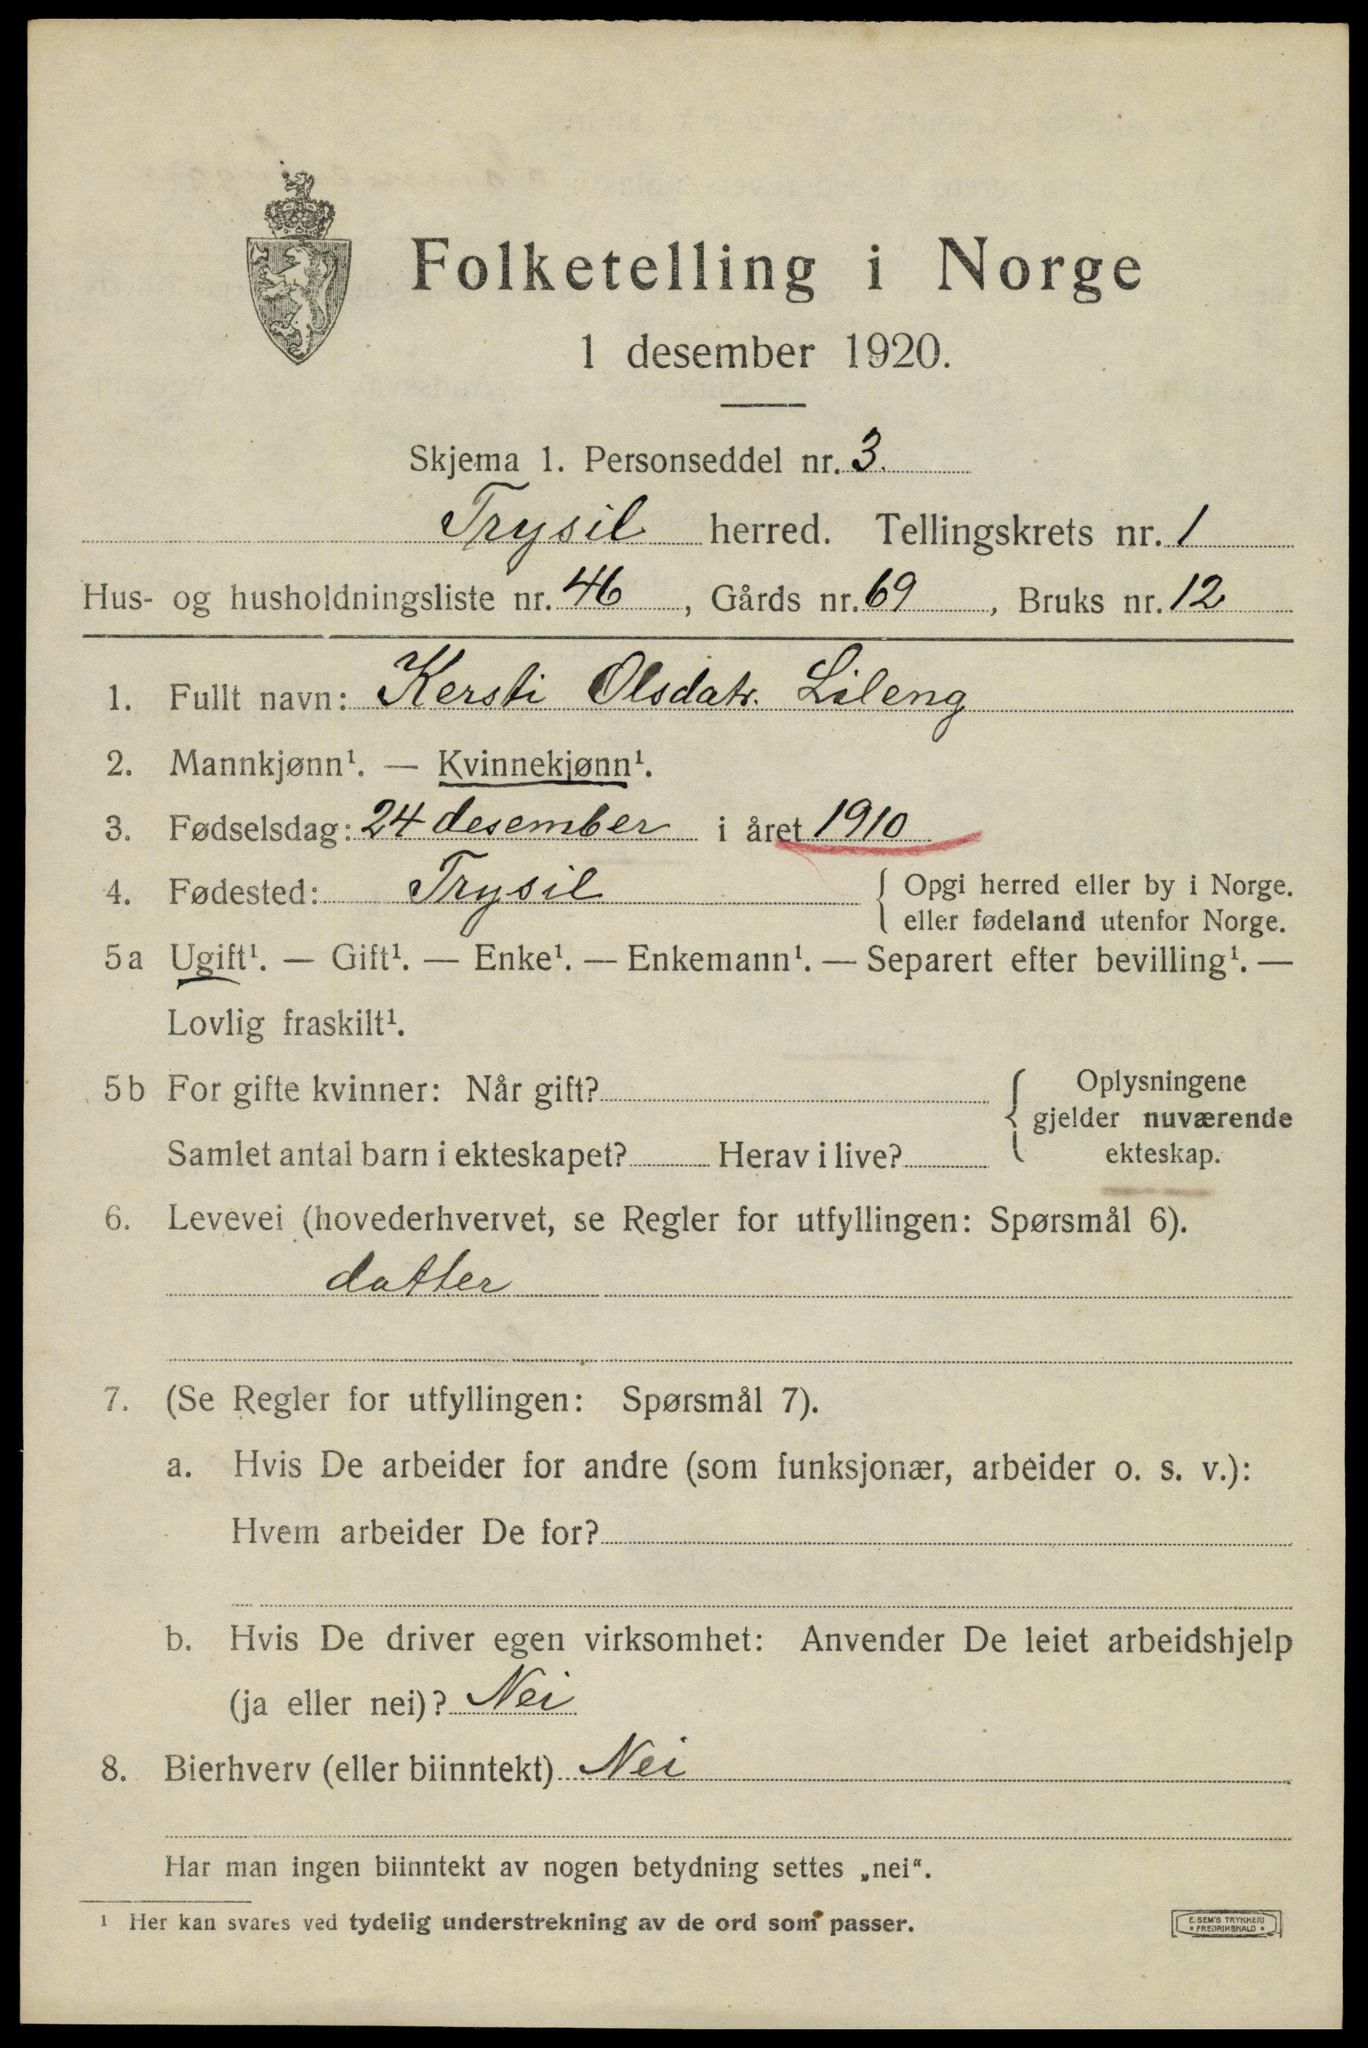 Folketelling i Norge
1 desember 1920.
Skjema 1. Personseddel nr. 3.
Trysil herred. Tellingskrets nr. 1
Hus- og husholdningsliste nr. 46, Gårds nr. 69, Bruks nr. 12
1. Fullt navn: Kersti Olsdatr. Lileng
2. Mannkjønn¹. — Kvinnekjønn¹.
3. Fødselsdag: 24 desember i året 1910
4. Fødested: Trysil { Opgi herred eller by i Norge.
eller fødeland utenfor Norge.
5a Ugift¹. — Gift¹. — Enke¹. — Enkemann¹. — Separert efter bevilling¹. —
Lovlig fraskilt¹.
5b For gifte kvinner: Når gift?
Samlet antal barn i ekteskapet? Herav i live?
Oplysningene
gjelder nuværende
ekteskap.
6. Levevei (hovederhvervet, se Regler for utfyllingen: Spørsmål 6).
datter
7. (Se Regler for utfyllingen: Spørsmål 7).
a. Hvis De arbeider for andre (som funksjonær, arbeider o. s. v.):
Hvem arbeider De for?
b. Hvis De driver egen virksomhet: Anvender De leiet arbeidshjelp
(ja eller nei)? Nei
8. Bierhverv (eller biinntekt) Nei
Har man ingen biinntekt av nogen betydning settes „nei“.
¹ Her kan svares ved tydelig understrekning av de ord som passer.
E. SEM'S TRYKKERI
* FREDRIKSHALD *